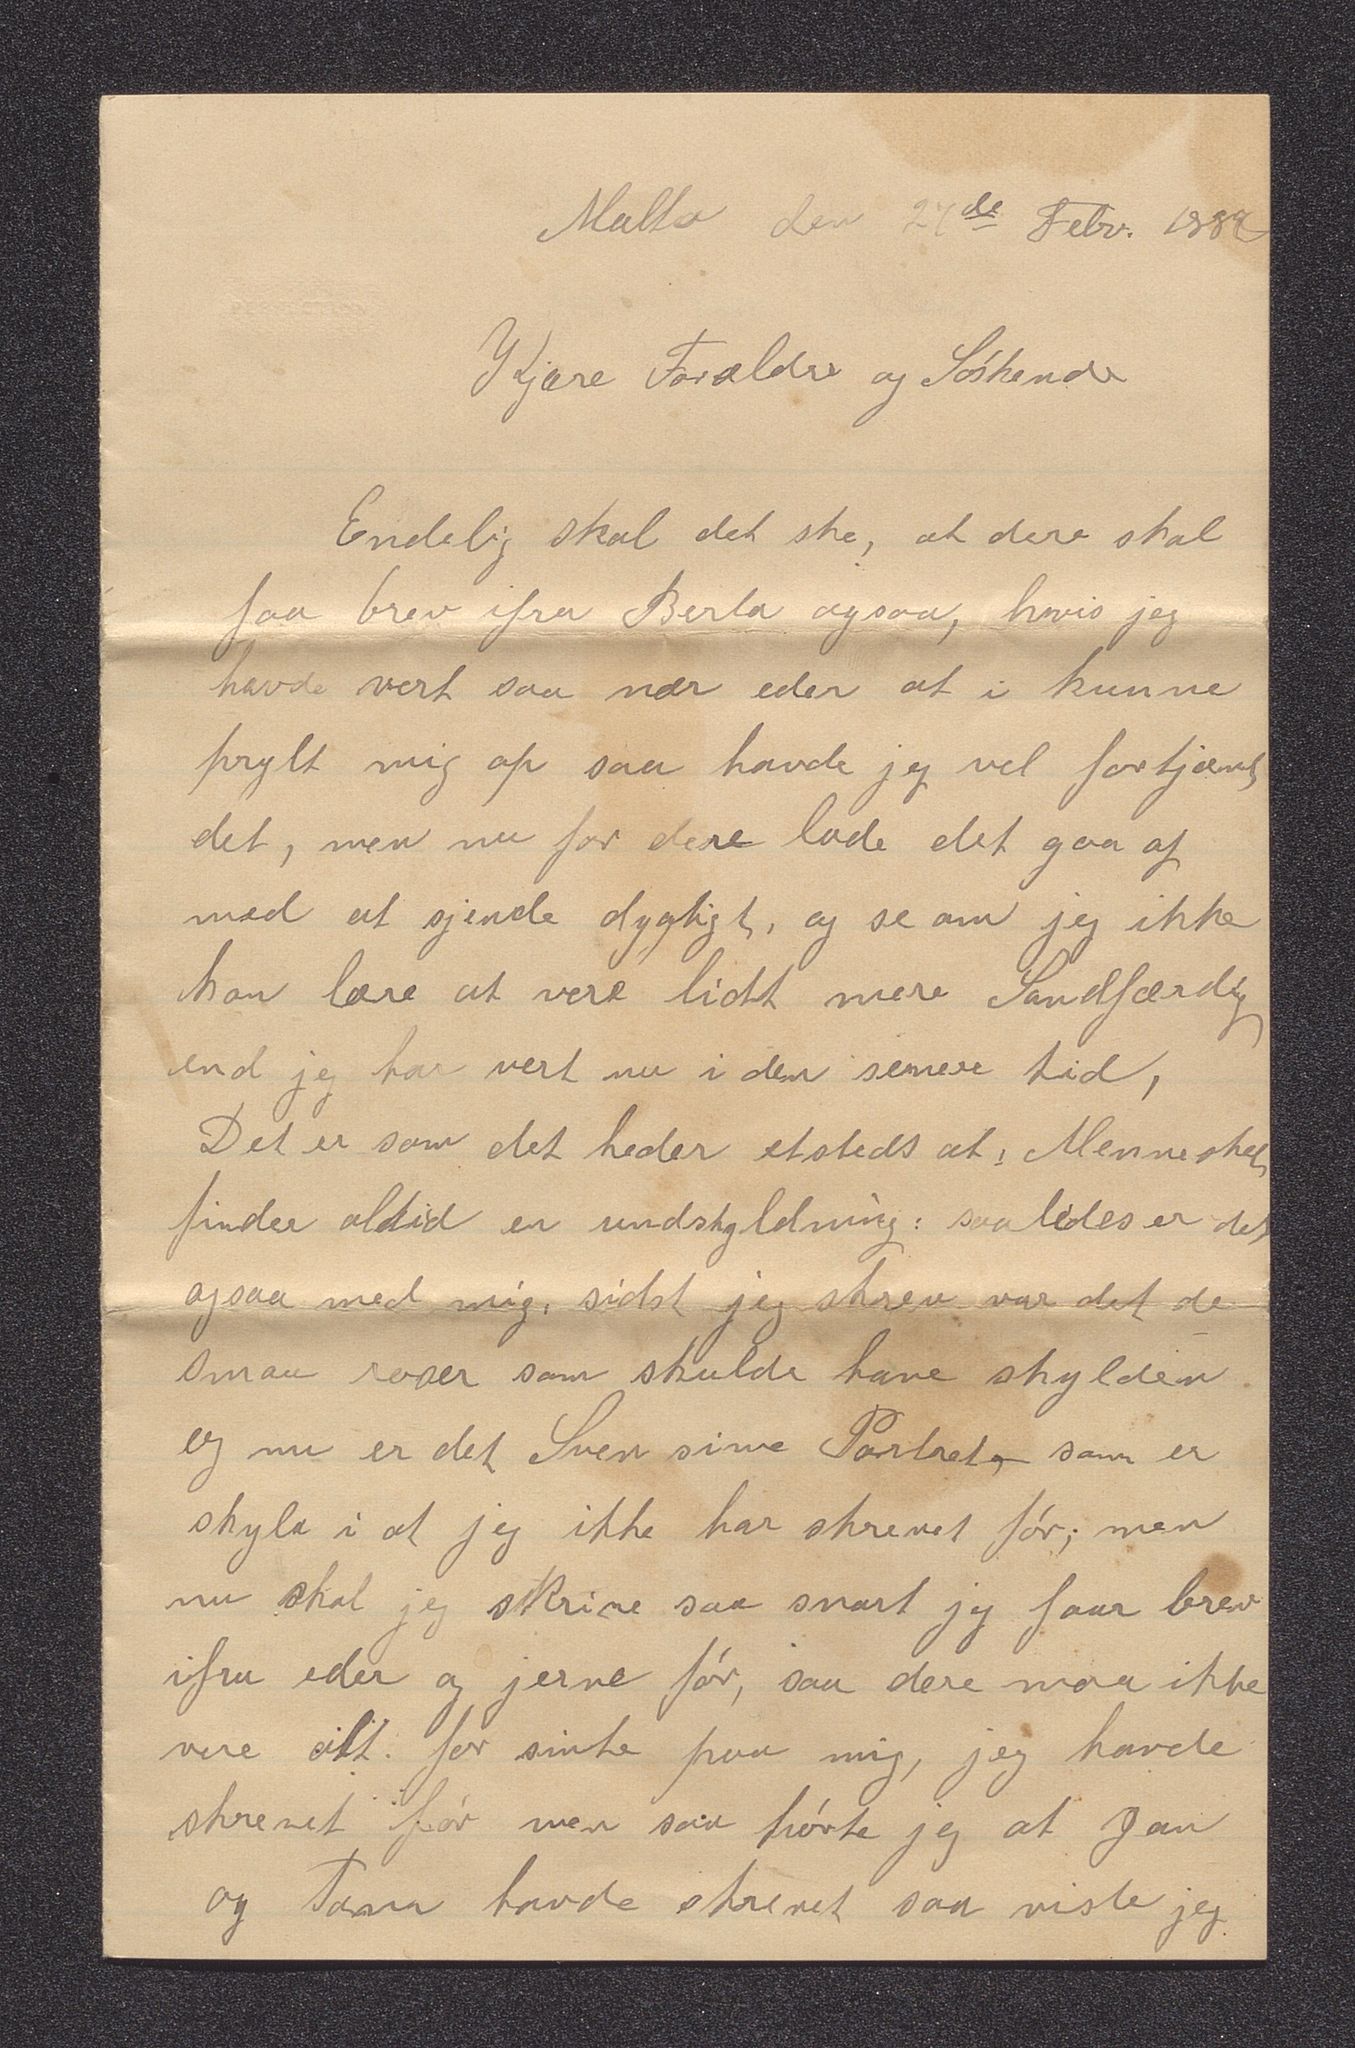 Malta den 24de Febr. 188
Kjære Forældre og Søskende
Endelig skal det ske, at dere skal
faa brev ifra Berta ogsaa, hvis jeg
havde vert saa nær eder at i kunne
prylt mig op saa havde jeg vel fortjænt
det, men nu for dere lade det gaa af
med at sjende dygtigt, og se om jeg ikke
kan lære at vere lidt mere Sandfærdig
end jeg har vert nu i den senere tid,
Det er som det heder etsteds at: Mennesket
finder altid en undskyldning: saaledes er det
ogsaa med mig, sidst jeg skrev var det de
smaa roser som skulde have skylden
og nu er det Sven sine Portret, som er
skyld i at jeg ikke har skrevet før; men
nu skal jeg skrive saa snart jeg faar brev
ifra eder og jerne før, saa dere maa ikke
vere alt for sinte paa mig, jeg havde
skrevet før men saa hørte jeg at Jan
og Tona havde skrevet saa viste jeg